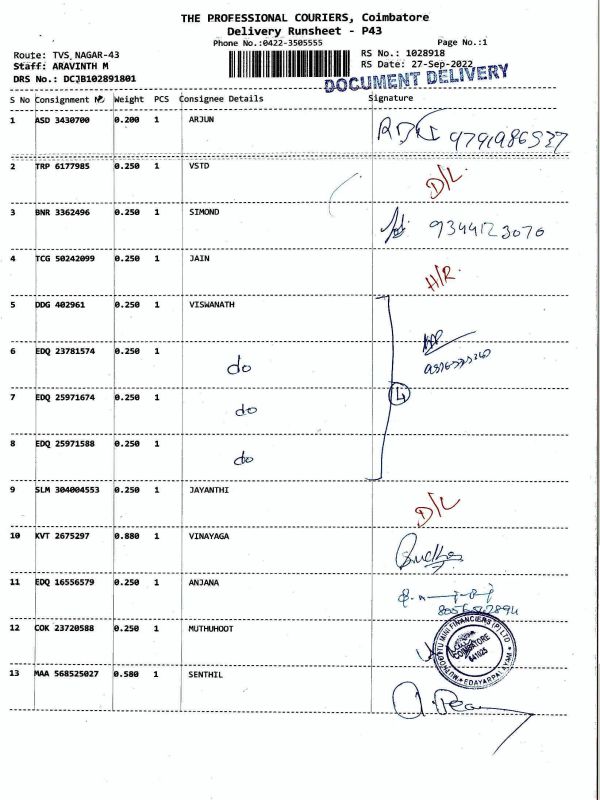 THE PROFESSIONAL COURIERS, Coimbatore
Delivery Runsheet - P43
Phone No.:0422-3505555 Page No.:1
Route: TVS NAGAR-43 RS No.: 1028918
Staff: ARAVINTH M RS Date: 27-Sep-2022
DRS No.: DCJB102891801
DOCUMENT DELIVERY
S No Consignment No Weight PCS Consignee Details Signature
1 ASD 3430700 0.200 1 ARJUN
2 TRP 6177985 0.250 1 VSTD D/L
3 BNR 3362496 0.250 1 SIMOND 9344123070
4 TCG 50242099 0.250 1 JAIN H/R.
5 DDG 402961 0.250 1 VISWANATH
6 EDQ 23781574 0.250 1 do
7 EDQ 25971674 0.250 1 do 4
8 EDQ 25971588 0.250 1 do
9 SLM 304004553 0.250 1 JAYANTHI D/L
10 KVT 2675297 0.880 1 VINAYAGA
11 EDQ 16556579 0.250 1 ANJANA
12 COK 23720588 0.250 1 MUTHUHOOT
COIMBATORE
641025
13 MAA 568525027 0.580 1 SENTHIL